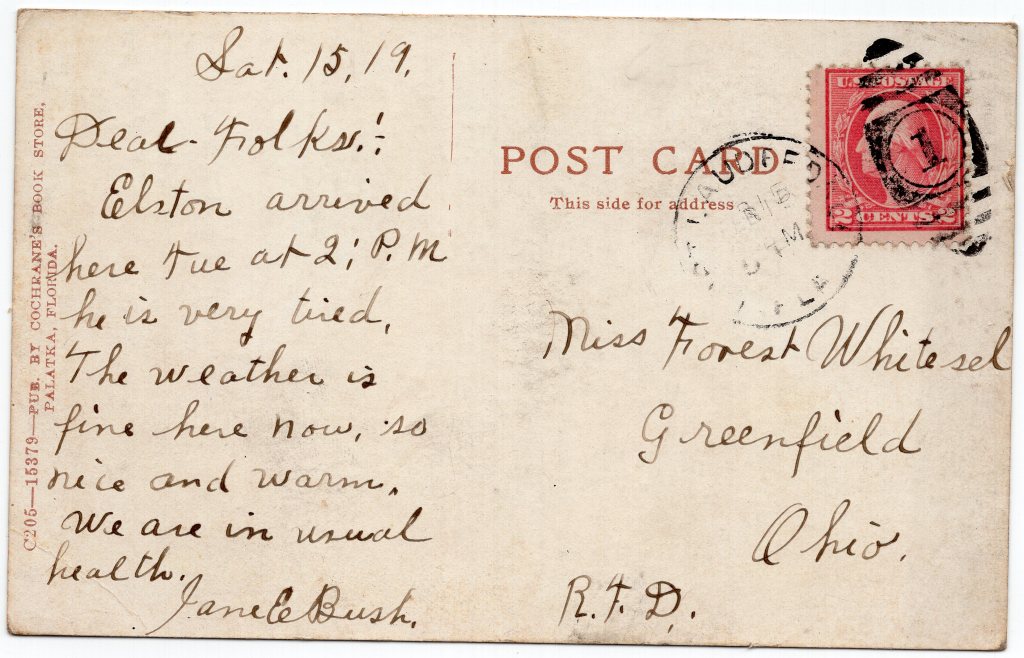 Sat. 15, 19.
Dear Folks:-
Elston arrived
here Tue at 2; P.M
he is very tired,
The weather is
fine here now, so
nice and warm.
We are in usual
health.
Jane E Bush.
C205—15379—PUB. BY COCHRANE'S BOOK STORE,
PALATKA, FLORIDA.
POST CARD
This side for address
U.S. POSTAGE
2 CENTS 2
1
Miss Forest Whitesel
Greenfield
Ohio.
R.F.D.